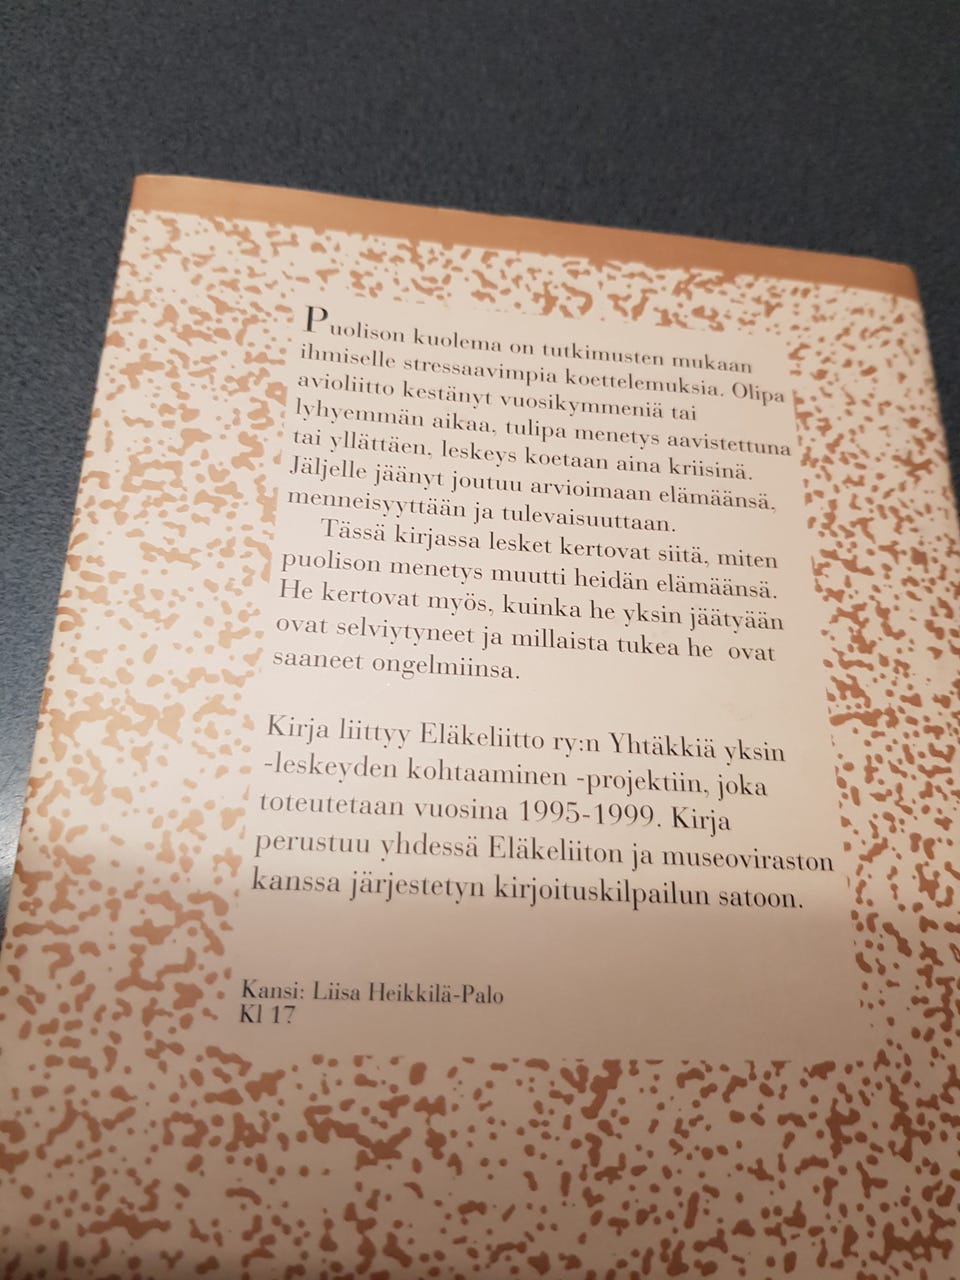 Puolison kuolema on tutkimusten mukaan
ihmiselle stressaavimpia koettelemuksia. Olipa
avioliitto kestänyt vuosikymmeniä tai
lyhyemmän aikaa, tulipa menetys aavistettuna
tai yllättäen, leskeys koetaan aina kriisinä.
Jäljelle jäänyt joutuu arvioimaan elämäänsä,
menneisyyttään ja tulevaisuuttaan.
Tässä kirjassa lesket kertovat siitä, miten
puolison menetys muutti heidän elämäänsä.
He kertovat myös, kuinka he yksin jäätyään
ovat selviytyneet ja millaista tukea he ovat
saaneet ongelmiinsa.
Kirja liittyy Eläkeliitto ry:n Yhtäkkiä yksin
-leskeyden kohtaaminen -projektiin, joka
toteutetaan vuosina 1995-1999. Kirja
perustuu yhdessä Eläkeliiton ja museoviraston
kanssa järjestetyn kirjoituskilpailun satoon.
Kansi: Liisa Heikkilä-Palo
Kl 17